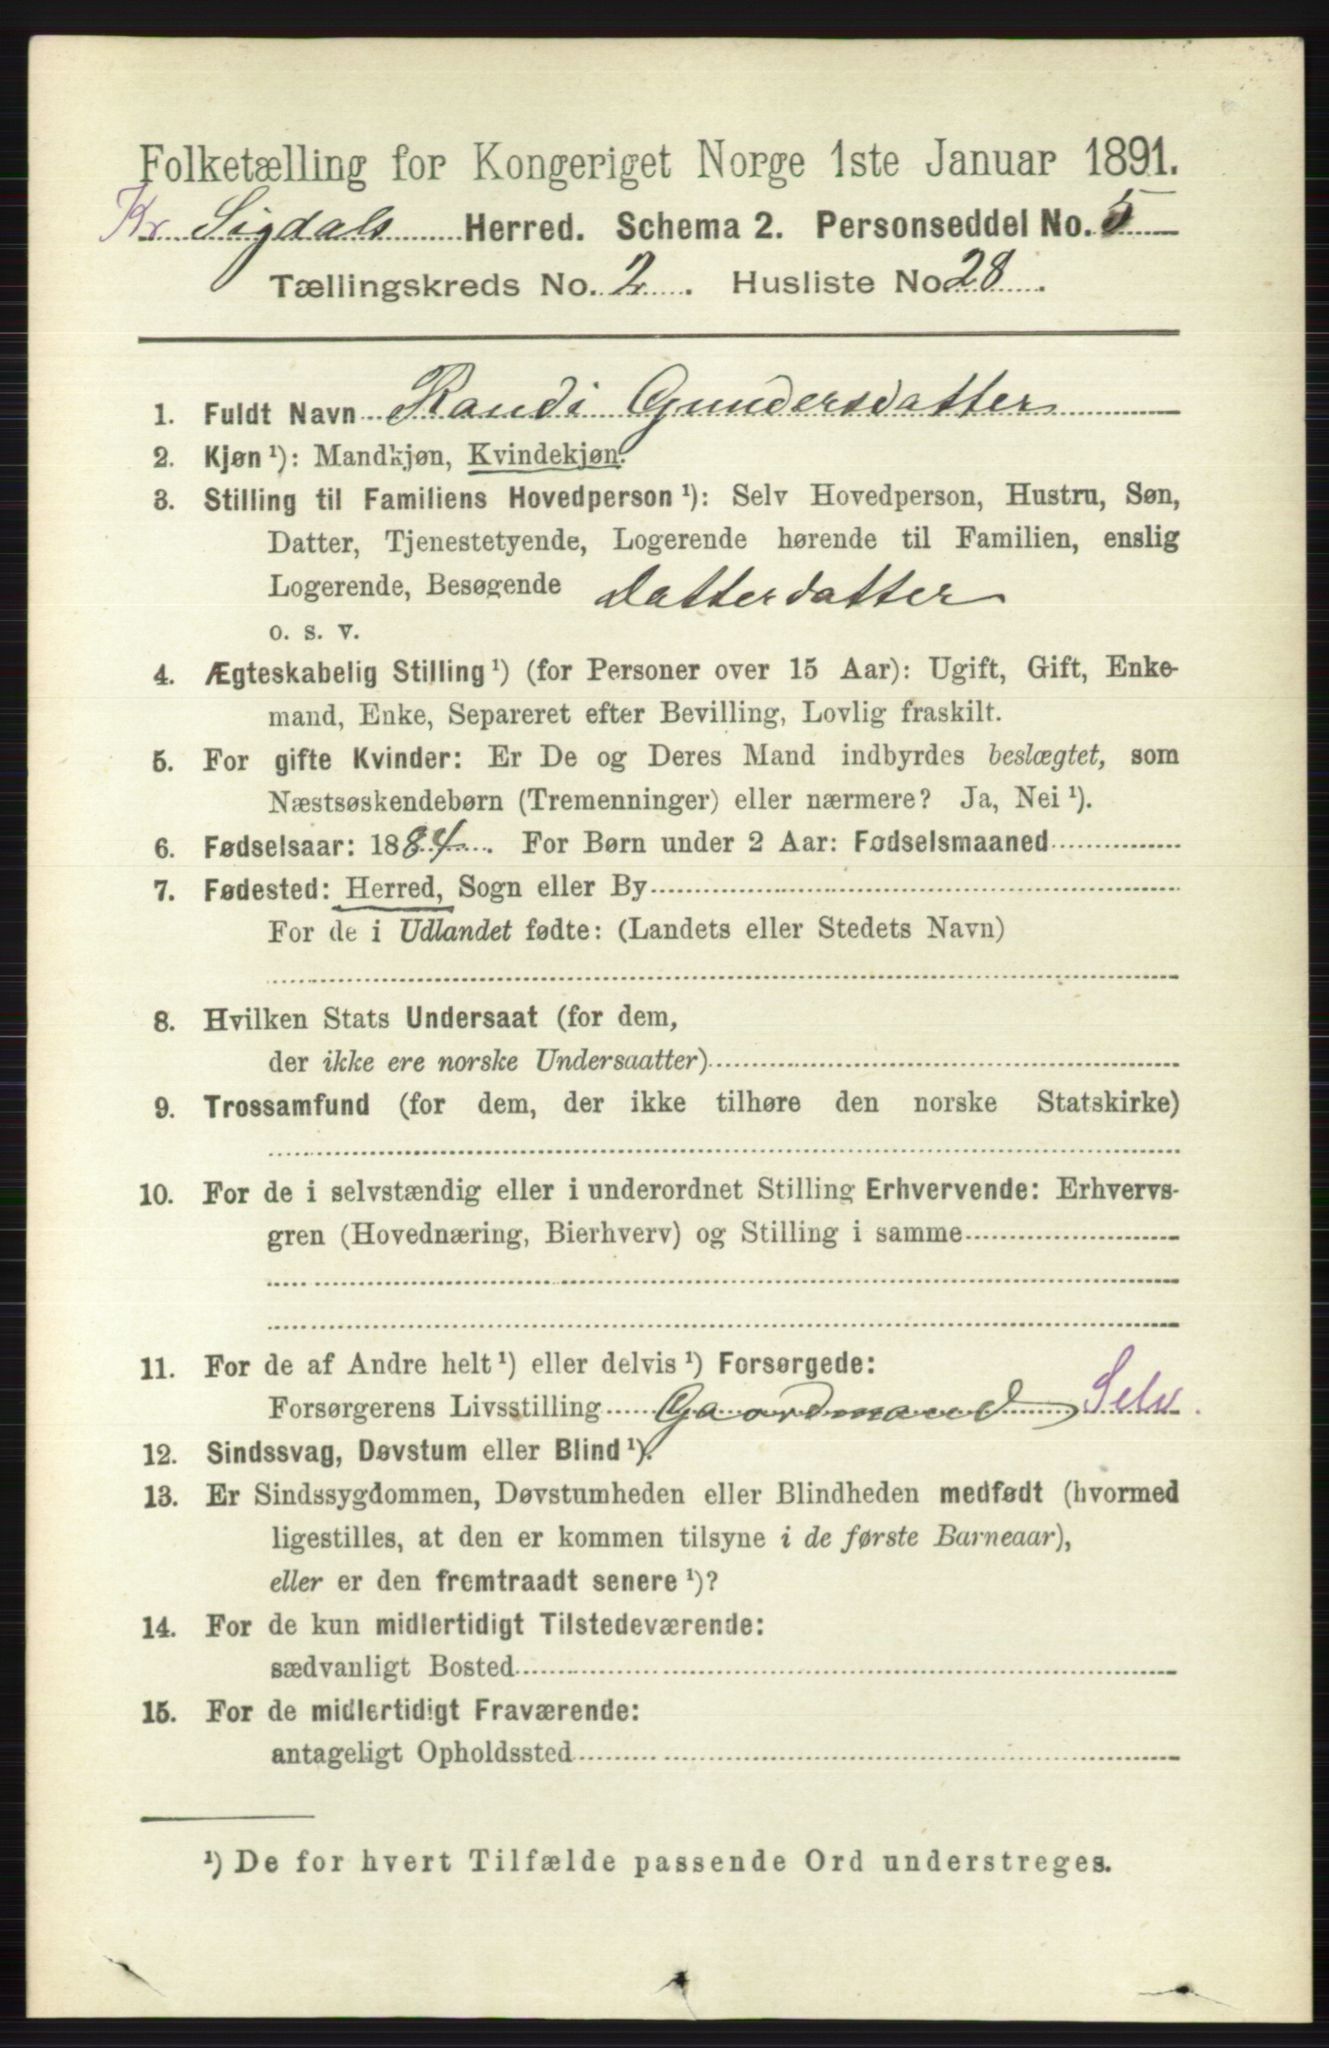 Folketælling for Kongeriget Norge 1ste Januar 1891.
Kr. Sigdals Herred. Schema 2. Personseddel No. 5
Tællingskreds No. 2. Husliste No. 28.
1. Fuldt Navn Randi Gundersdatter
2. Kjøn ¹): Mandkjøn, Kvindekjøn.
3. Stilling til Familiens Hovedperson ¹): Selv Hovedperson, Hustru, Søn,
Datter, Tjenestetyende, Logerende hørende til Familien, enslig
Logerende, Besøgende Datterdatter
o. s. v.
4. Ægteskabelig Stilling ¹) (for Personer over 15 Aar): Ugift, Gift, Enke-
mand, Enke, Separeret efter Bevilling, Lovlig fraskilt.
5. For gifte Kvinder: Er De og Deres Mand indbyrdes beslægtet, som
Næstsøskendebørn (Tremenninger) eller nærmere? Ja, Nei ¹).
6. Fødselsaar: 1884. For Børn under 2 Aar: Fødselsmaaned
7. Fødested: Herred, Sogn eller By
For de i Udlandet fødte: (Landets eller Stedets Navn)
8. Hvilken Stats Undersaat (for dem,
der ikke ere norske Undersaatter)
9. Trossamfund (for dem, der ikke tilhøre den norske Statskirke)
10. For de i selvstændig eller i underordnet Stilling Erhvervende: Erhvervs-
gren (Hovednæring, Bierhverv) og Stilling i samme
11. For de af Andre helt ¹) eller delvis ¹) Forsørgede:
Forsørgerens Livsstilling Gaardmand Selv.
12. Sindssvag, Døvstum eller Blind ¹).
13. Er Sindssygdommen, Døvstumheden eller Blindheden medfødt (hvormed
ligestilles, at den er kommen tilsyne i de første Barneaar),
eller er den fremtraadt senere ¹)?
14. For de kun midlertidigt Tilstedeværende:
sædvanligt Bosted
15. For de midlertidigt Fraværende:
antageligt Opholdssted
¹) De for hvert Tilfælde passende Ord understreges.